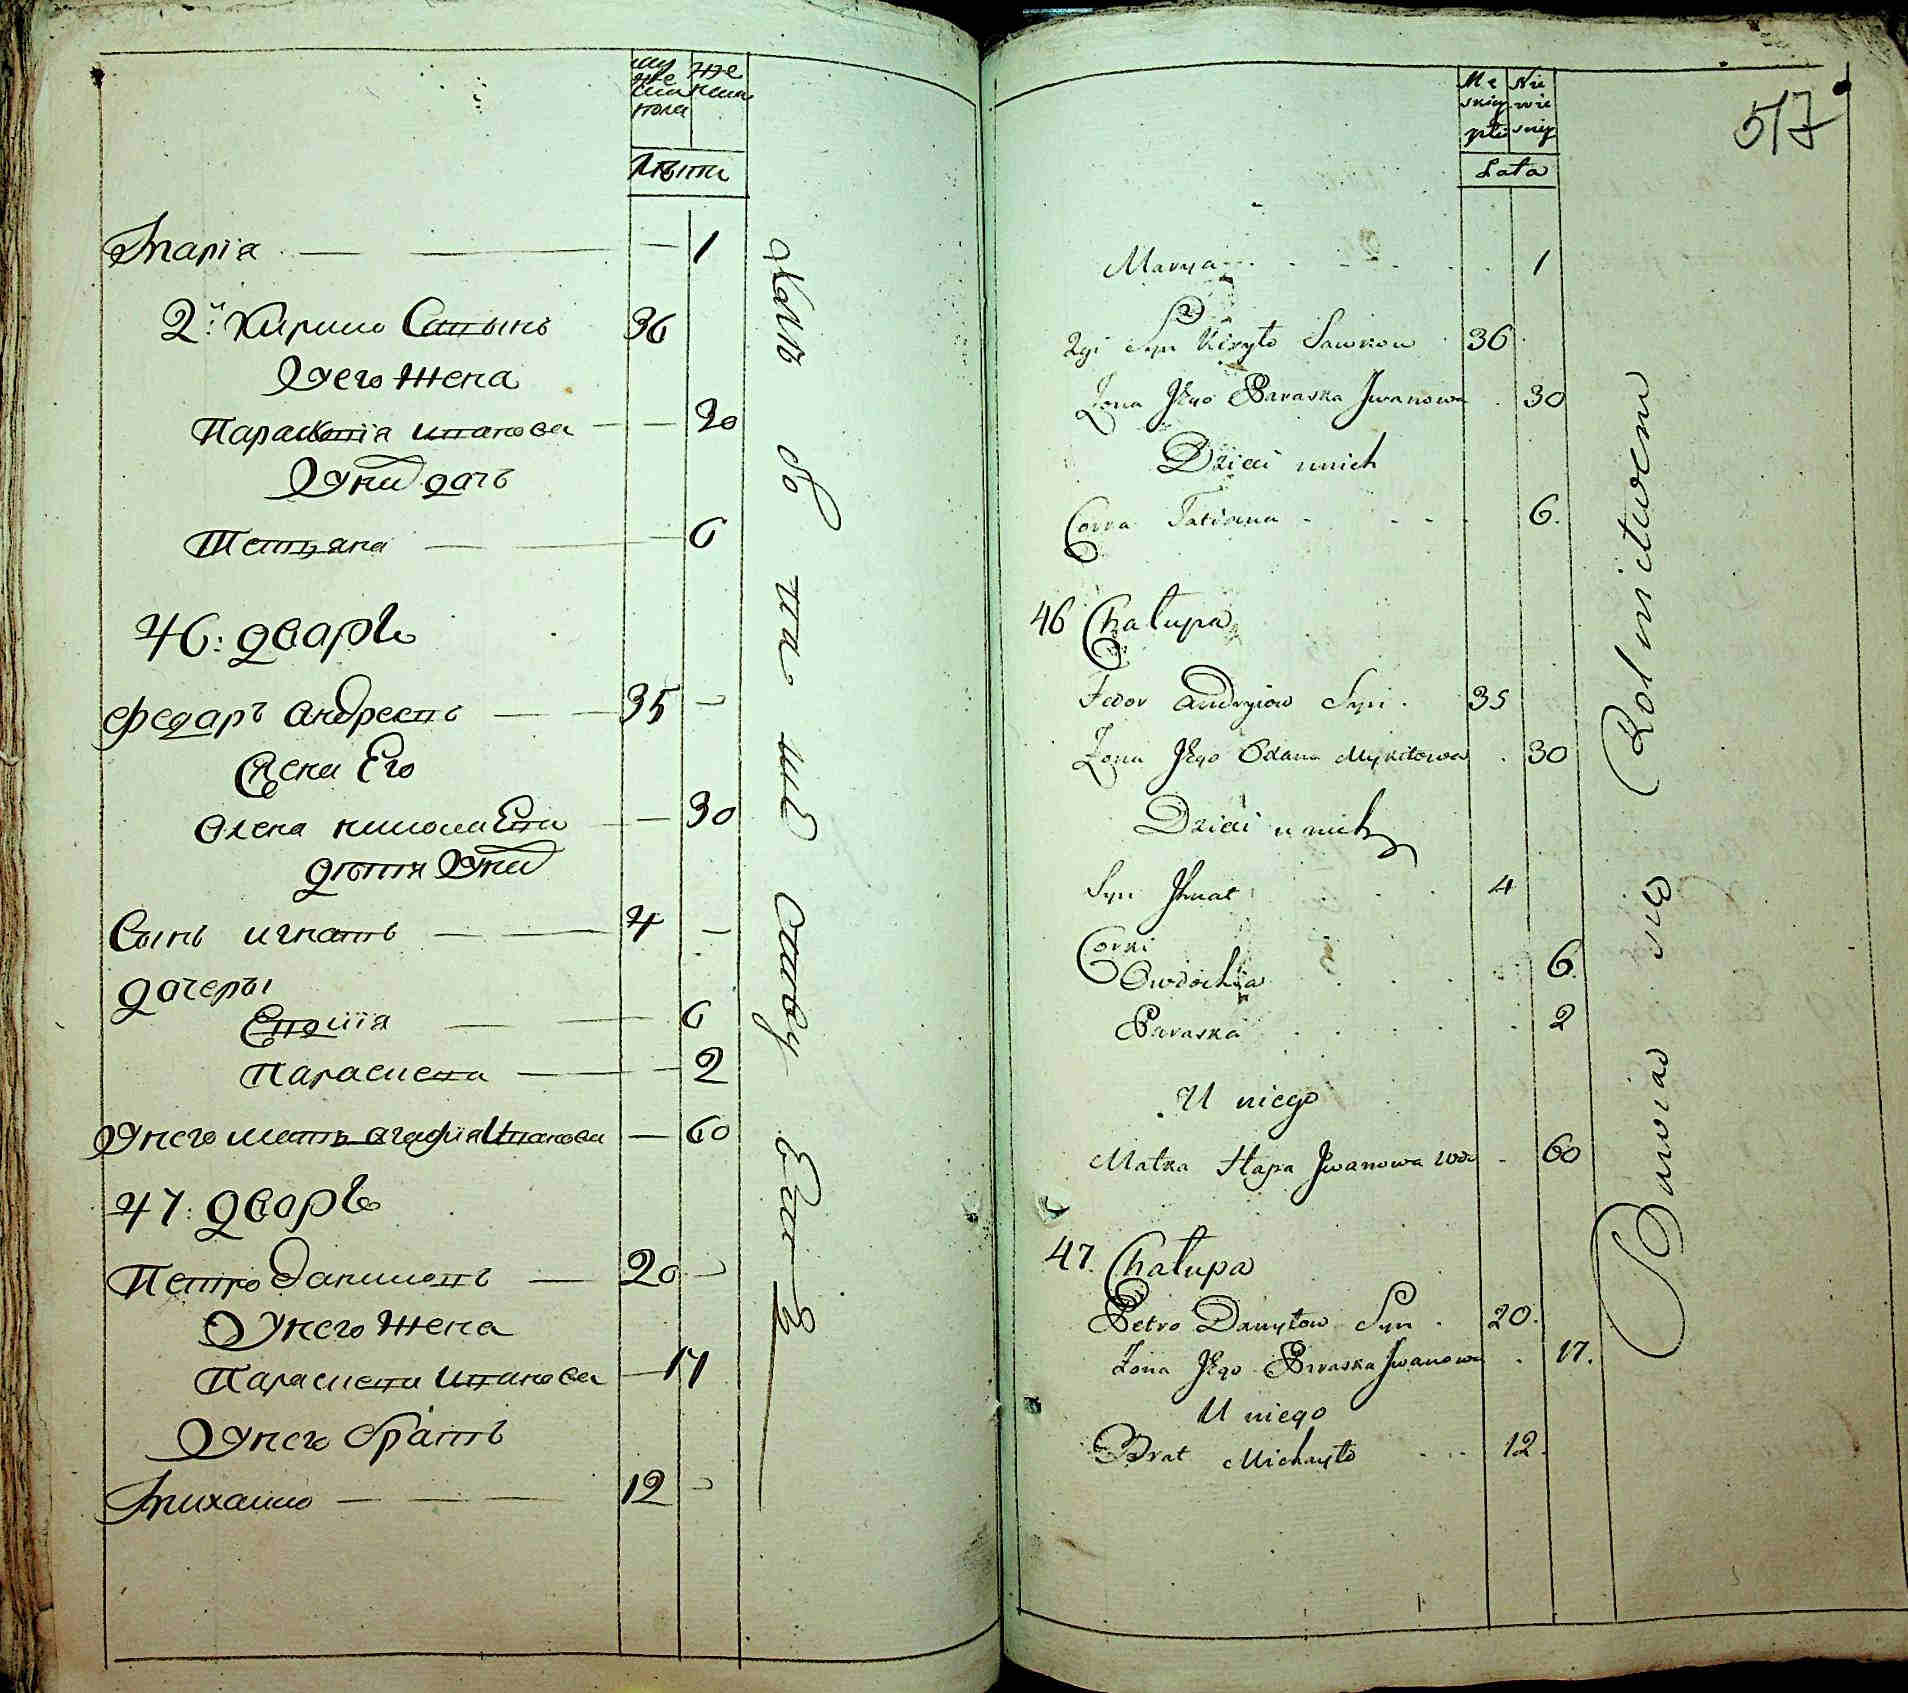 муже
ска
пола
же
ска
Лѣта
Марія 1
2й: Кирило Савинъ 36
Унего жена
Параскевія иванова 30
Унихъ дочь
Тетяна 6
46: дворъ
Федаръ андреевъ 35
жена Его
Олена николаева 30
дѣтей Унихъ
Сынъ игнатъ 4
дочеры
Евдокія 6
Параскева 2
Унего мать агафія Иванова 60
47: дворъ
Петро даниловъ 20
Унего жена
Параскева иванова 17
Унего братъ
Михайло 12
Me
skiey
płci
Nie
wie
sciey
Lata
517
Marya 1
2gi Syn Kiryło Sawkow 36
Zona Jego Paraska Jwanowa 30
Dzieci unich
Corka Tatiana 6.
46 Chałupa
Fedor Andryiow Syn 35
Zona Jego Odana Mykitowa 30
Dzieci u nich
Syn Jhnat 4
Corki
Owdochia 6.
Paraska 2
U niego
Matka Hapa Jwanowa wdo 60
47. Chałupa
Petro Danyłow Syn 20.
Zona Jego Paraska Jwanowa 17.
U niego
Brat Michayło 12.
Bawiąc się Rolnictwem